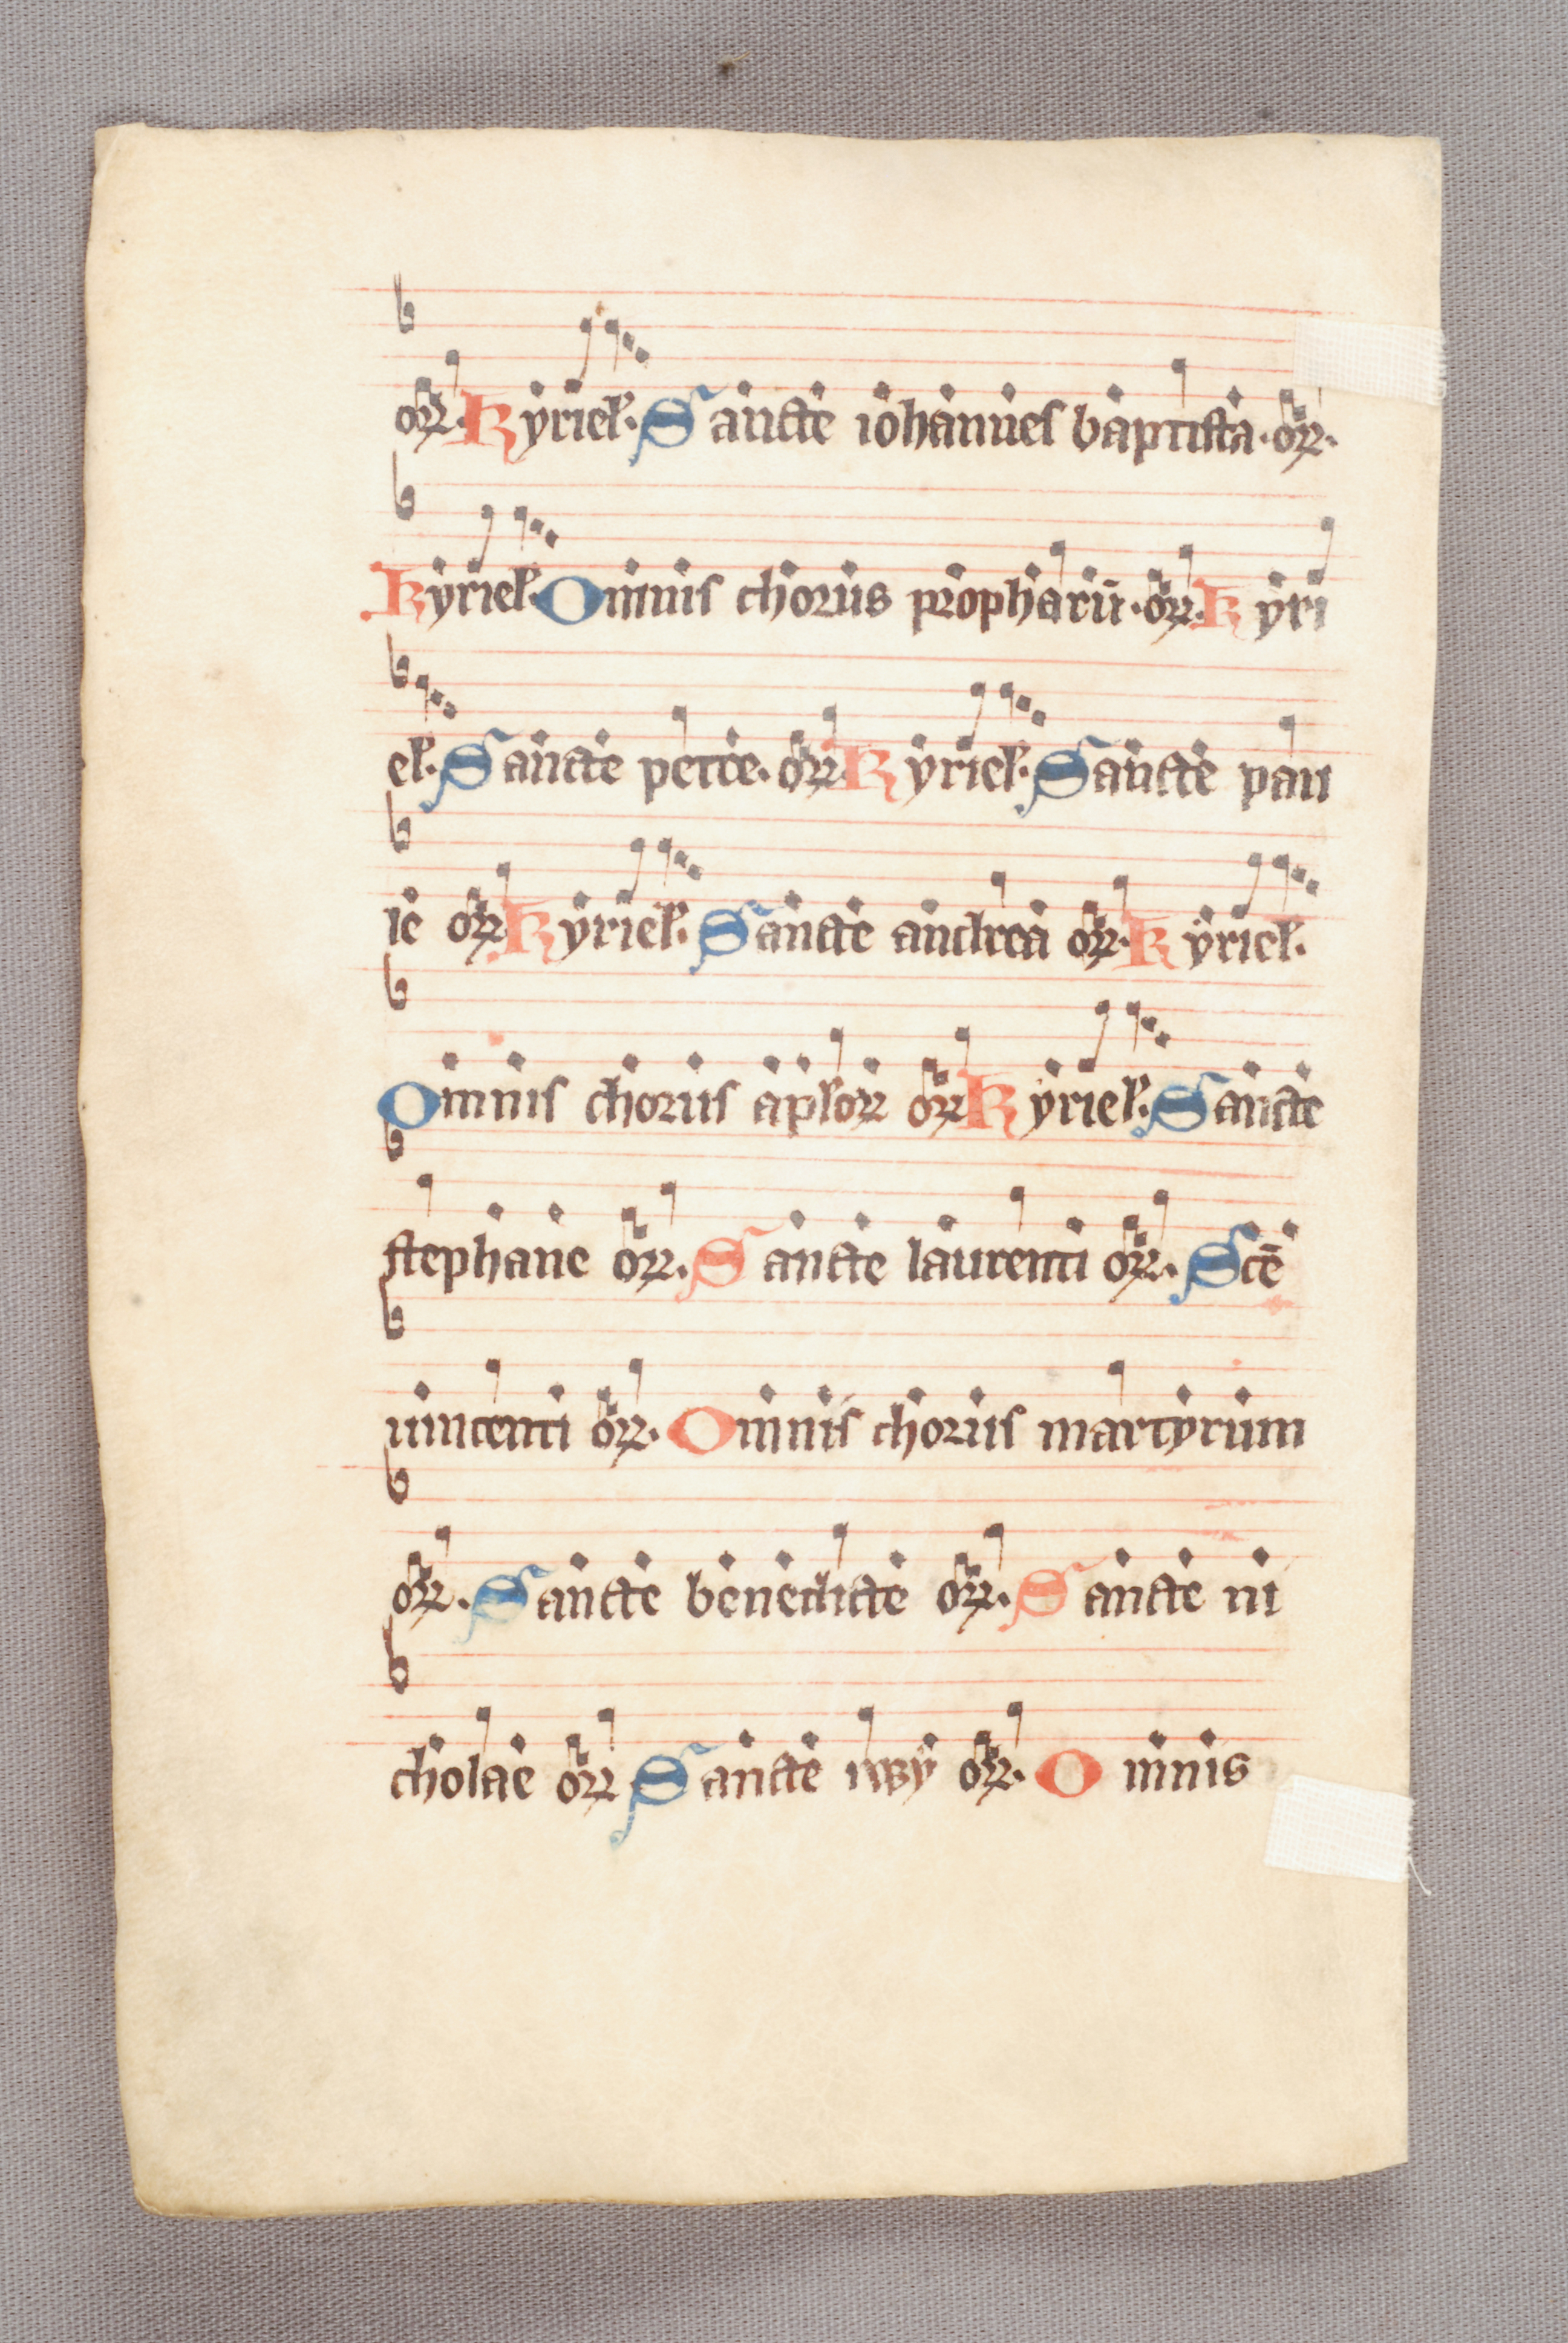 oꝝ. Kyriel̕. Sancte iohannes baptista. oꝝ.
Kyriel̕. Omnis chorus prophatū. oꝝ. Kyri
el̕. Sancte petre. oꝝ. Kyriel̕. Sancte pau
le oꝝ Kyriel̕. Sancte andrea oꝝ. Kyriel̕.
Omnis chorus apl̕oꝝ oꝝ Kyriel̕. Sancte
stephane oꝝ. Sancte laurenti oꝝ. Scē
uincenti oꝝ. Omnis chorus martyrum
oꝝ. Sancte benedicte oꝝ. Sancte ni
cholae oꝝ Sancte oꝝ. Omnis